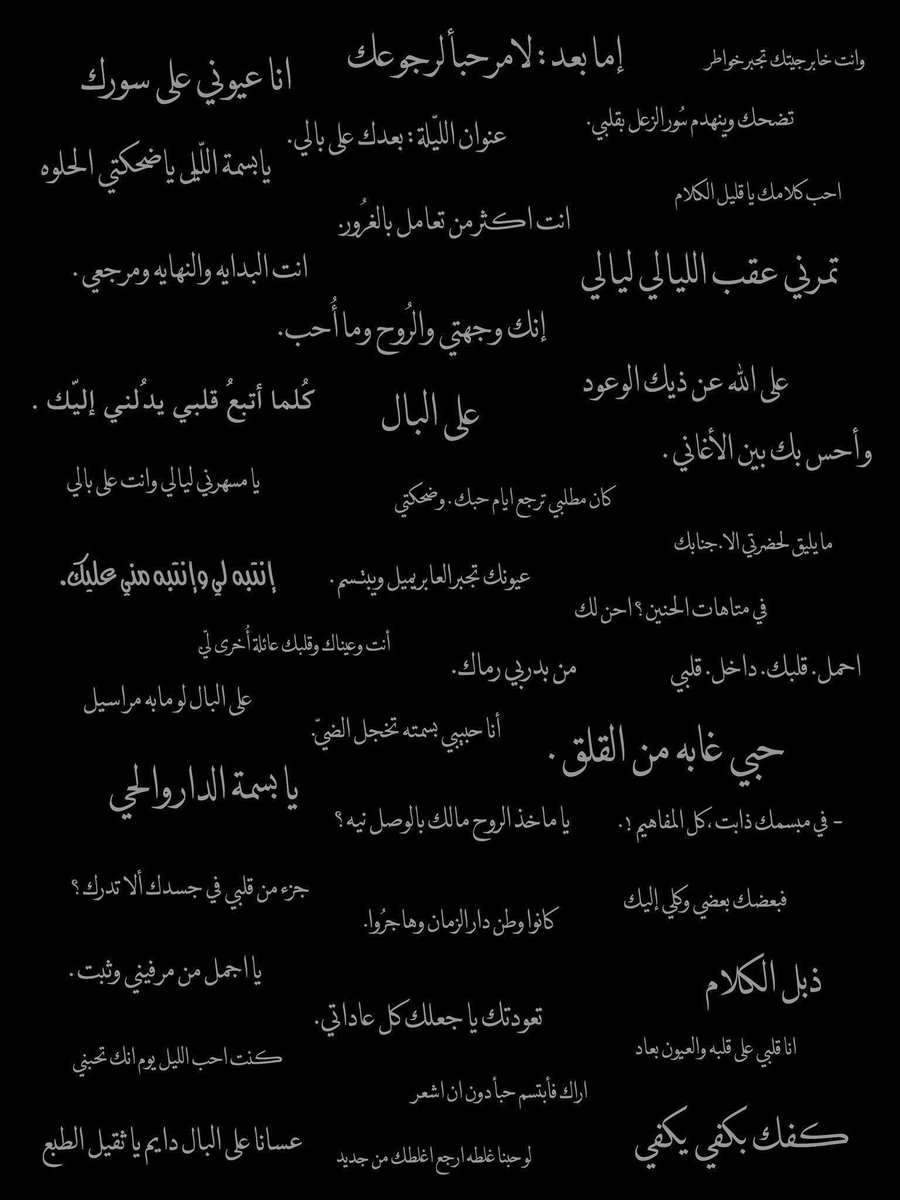 وانت خابر جيتك تجبر خواطر
إما بعد : لا مرحباً لرجوعك
انا عيوني على سورك
تضحك وينهدم سُور الزعل بقلبي.
عنوان الليّلة : بعدك على بالي.
يا بسمة اللّيل يا ضحكتي الحلوه
احب كلامك يا قليل الكلام
انت اكثر من تعامل بالغرُور.
تمرني عقب الليالي ليالي
انت البدايه والنهايه ومرجعي .
إنك وجهتي والرُوح وما أُحب.
على الله عن ذيك الوعود
كُلما أتبعُ قلبي يدُلني إليّك .
على البال
وأحس بك بين الأغاني .
يا مسهرني ليالي وانت على بالي
كان مطلبي ترجع ايام حبك . وضحكتي
ما يليق لحضرتي الا . جنابك
إنتبه لي وإنتبه مني عليك.
عيونك تجبر العابر يميل ويبتسم .
في متاهات الحنين ؟ احن لك
أنت وعيناك وقلبك عائلة أُخرى لّي
من بد دربي رماك.
احمل . قلبك . داخل . قلبي
على البال لو مابه مراسيل
أنا حبيبي بسمته تخجل الضيّ.
حبي غابه من القلق .
يا بسمة الدار والحي
يا ماخذ الروح مالك بالوصل نيه ؟
- في مبسمك ذابت ،كل المفاهيم !.
جزء من قلبي في جسدك ألا تدرك ؟
فبعضك بعضي وكلي إليك
كانوا وطن دار الزمان وهاجرُوا.
يا اجمل من مرفيني وثبت .
ذبل الكلام
تعودتك يا جعلك كل عاداتي.
انا قلبي على قلبه والعيون بعاد
كنت احب الليل يوم انك تحبني
اراك فأبتسم حباً دون ان اشعر
كفك بكفي يكفي
عسانا على البال دايم يا ثقيل الطبع
لو حبنا غلطه ارجع اغلطك من جديد